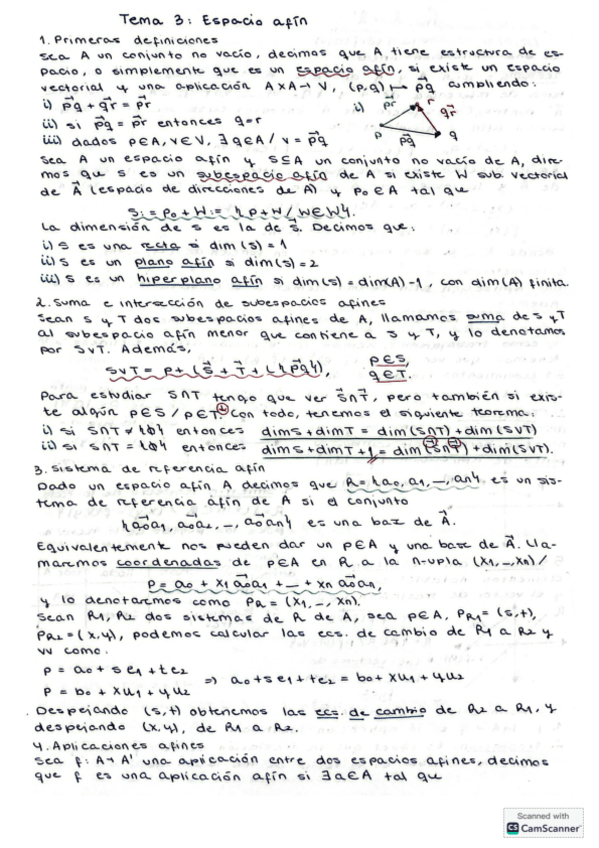 Tema 3: Espacio afín
1. Primeras definiciones
Sea A un conjunto no vacío, decimos que A tiene estructura de es-
pacio, o simplemente que es un espacio afín, si existe un espacio
vectorial y una aplicación A×A→V, (p,q) ↦ p⃗q cumpliendo:
i) p⃗q + q⃗r = p⃗r
ii) si p⃗q = p⃗r entonces q=r
iii) dados p∈A, v∈V, ∃ q∈A / v = p⃗q
i) p⃗r r q⃗r
p p⃗q q
Sea A un espacio afín y S⊆A un conjunto no vacío de A, dire-
mos que S es un subespacio afín de A si existe W sub. vectorial
de A⃗ (espacio de direcciones de A) y p₀∈A tal que
S:= p₀+W:= {p+w/w∈W}.
La dimensión de S es la de S⃗. Decimos que:
i) S es una recta si dim(S)=1
ii) S es un plano afín si dim(S)=2
iii) S es un hiperplano afín si dim(S)=dim(A)-1, con dim(A) finita.
2. Suma e intersección de subespacios afines
Sean S y T dos subespacios afines de A, llamamos suma de S y T
al subespacio afín menor que contiene a S y T, y lo denotamos
por S∨T. Además,
S∨T = p+(S⃗+T⃗+L{p⃗q}), p∈S, q∈T.
Para estudiar S∩T tengo que ver S⃗∩T⃗, pero también si exis-
te algún p∈S/p∈T. Con todo, tenemos el siguiente teorema:
i) si S∩T≠{∅} entonces dimS+dimT = dim(S∩T)+dim(S∨T)
ii) si S∩T={∅} entonces dimS+dimT+1=dim(S⃗∩T⃗)+dim(S∨T).
3. Sistema de referencia afín
Dado un espacio afín A decimos que R={a₀,a₁,...,an} es un sis-
tema de referencia afín de A si el conjunto
{a⃗₀a₁, a⃗₀a₂, ..., a⃗₀an} es una base de A⃗.
Equivalentemente nos pueden dar un p∈A y una base de A⃗. Lla-
maremos coordenadas de p∈A en R a la n-upla (x₁,...,xn)/
p = a₀ + x₁a⃗₀a₁ + ... + xn a⃗₀an,
y lo denotaremos como PR = (x₁,...,xn).
Sean R₁, R₂ dos sistemas de R de A, sea p∈A, PR₁=(s,t),
PR₂=(x,y), podemos calcular las ecs. de cambio de R₁ a R₂ y
vv como:
p = a₀ + se₁ + te₂
p = b₀ + xu₁ + yu₂
⇒ a₀+se₁+te₂ = b₀+xu₁+yu₂
Despejando (s,t) obtenemos las ecs. de cambio de R₂ a R₁, y
despejando (x,y), de R₁ a R₂.
4. Aplicaciones afines
Sea f: A→A' una apicación entre dos espacios afines, decimos
que f es una aplicación afín si ∃ a∈A tal que
Scanned with
CS CamScanner